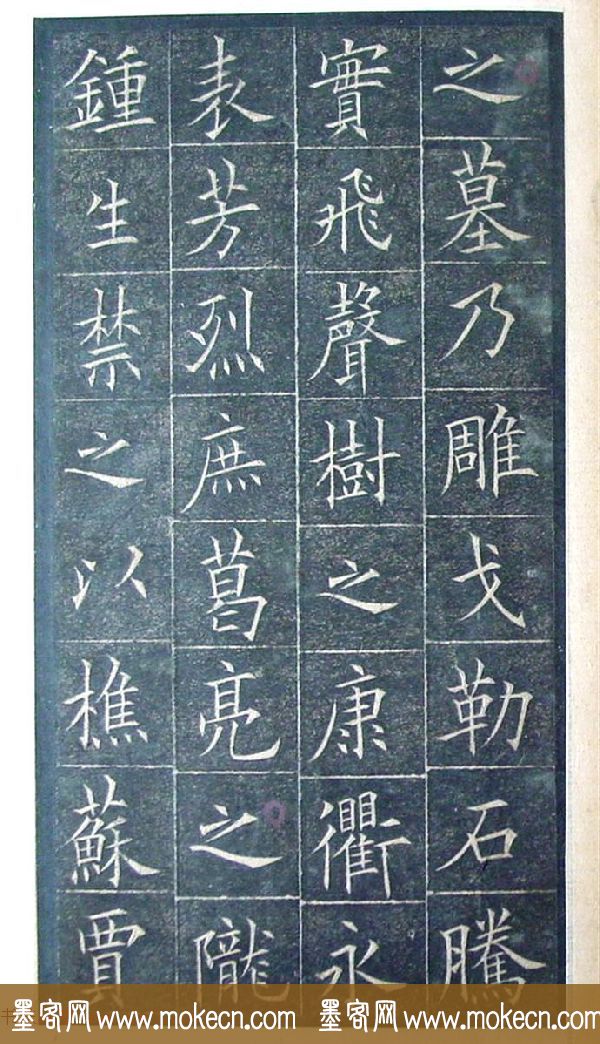 之墓乃雕戈勒石騰
實飛聲樹之康衢永
表芳烈庶葛亮之隴
鍾生禁之以樵蘇賈
墨客网 www.mokecn.com 墨客网 www.mokecn.com